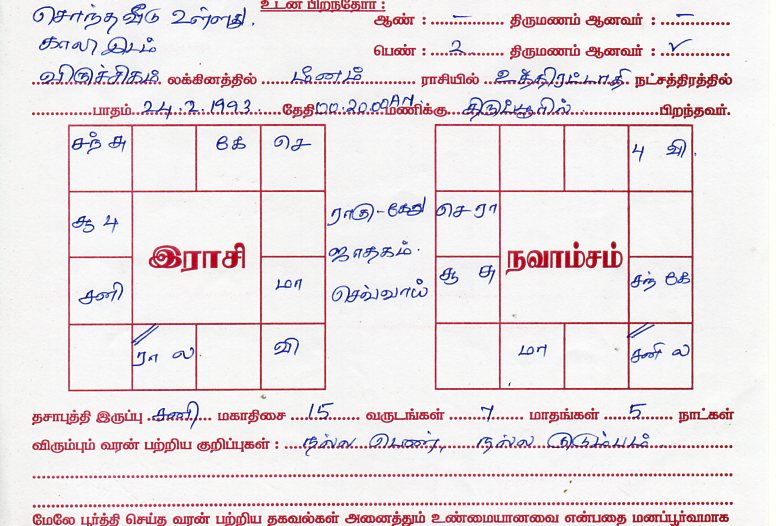 உடன் பிறந்தோர் :
சொந்தவீடு உள்ளது.
ஆண் : – திருமணம் ஆனவர் : –
காலி இடம்
பெண் : 2 திருமணம் ஆனவர் : ✓
விருச்சிகம் லக்கினத்தில் மீனம் ராசியில் உத்திரட்டாதி நட்சத்திரத்தில்
பாதம் 24.2.1993 தேதி 00.20.00 AM மணிக்கு திருப்பூரில் பிறந்தவர்.
சந் சு கே செ
பு வி
ஆ பு
ராகு - கேது
செ ரா
இராசி
ஜாதகம்.
நவாம்சம்
சனி
மா
செவ்வாய்
ஆ சு
சந் கே
ரா ல
வி
மா
சனி ல
தசாபுத்தி இருப்பு சனி மகாதிசை 15 வருடங்கள் 7 மாதங்கள் 5 நாட்கள்
விரும்பும் வரன் பற்றிய குறிப்புகள் : நல்ல பெண், நல்ல குடும்பம்.
மேலே பூர்த்தி செய்த வரன் பற்றிய தகவல்கள் அனைத்தும் உண்மையானவை என்பதை மனப்பூர்வமாக